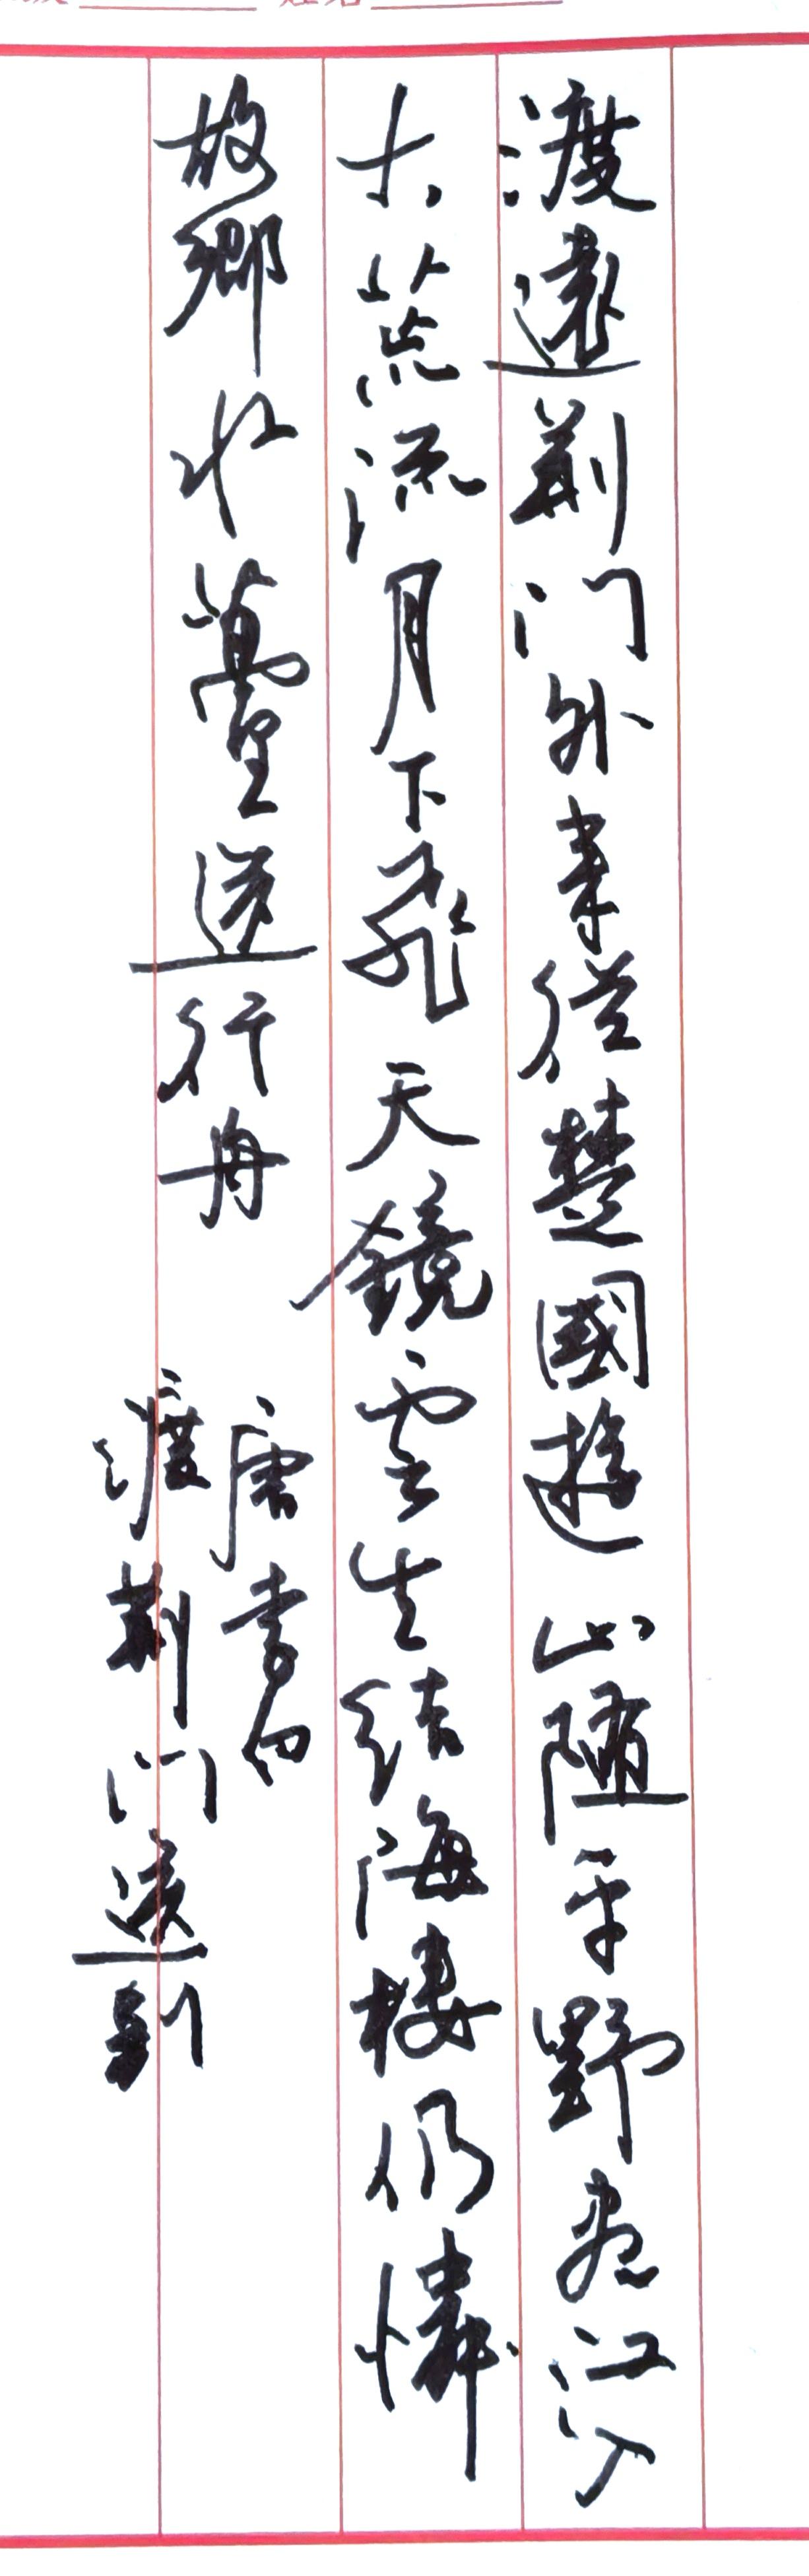 渡遠荊门外來從楚國遊山隨平野盡江入
大荒流月下飛天鏡雲生結海樓仍憐
故鄉水萬里送行舟
唐李白
渡荊门送別